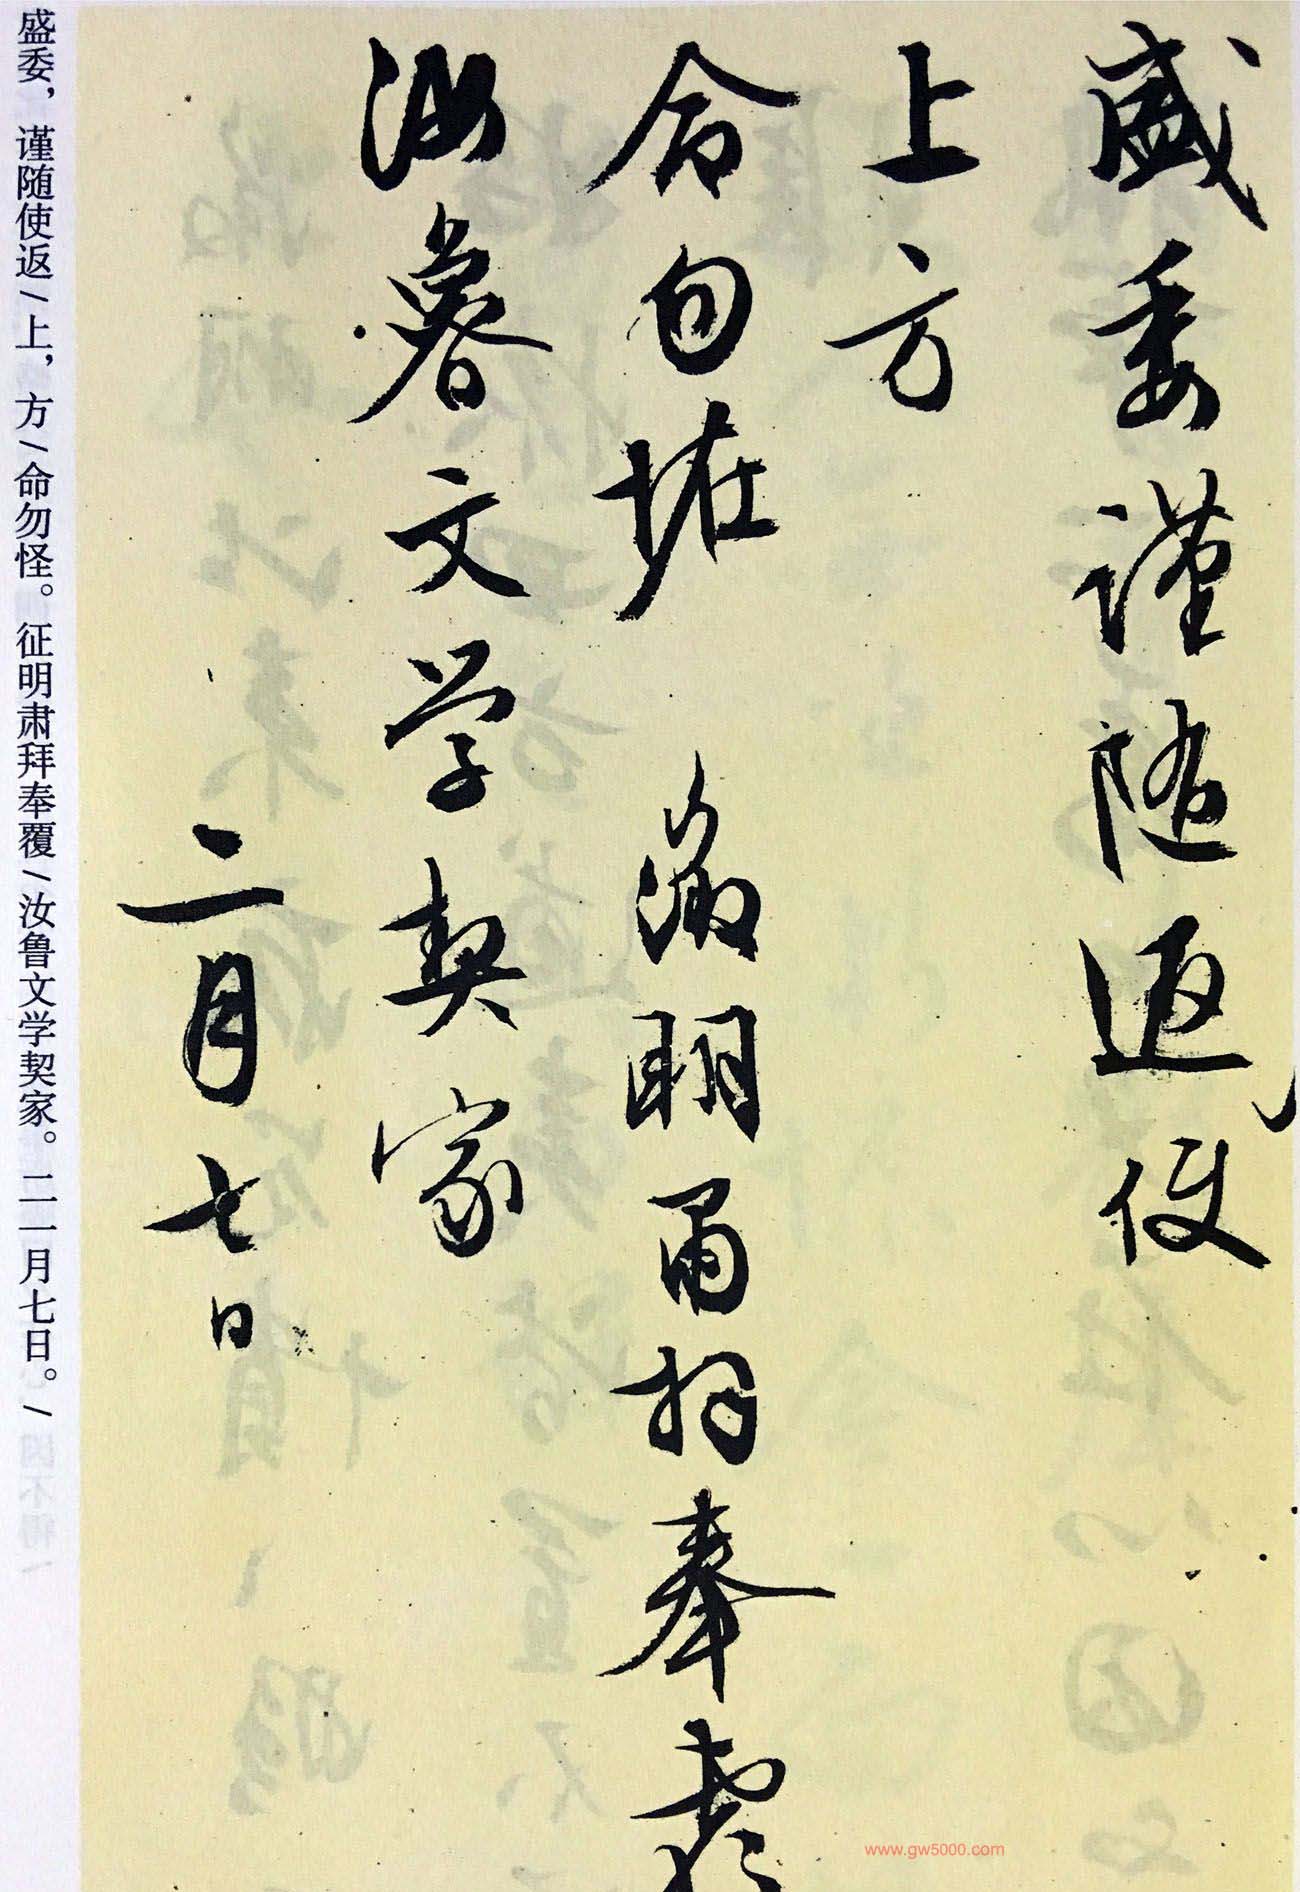 盛委謹随返使
上方
命勿恠 徵明肅拜奉
汝魯文学契家
二月七日
盛委，谨随使返/上，方/命勿怪。征明肃拜奉覆/汝鲁文学契家。二一月七日。/
www.gw5000.com